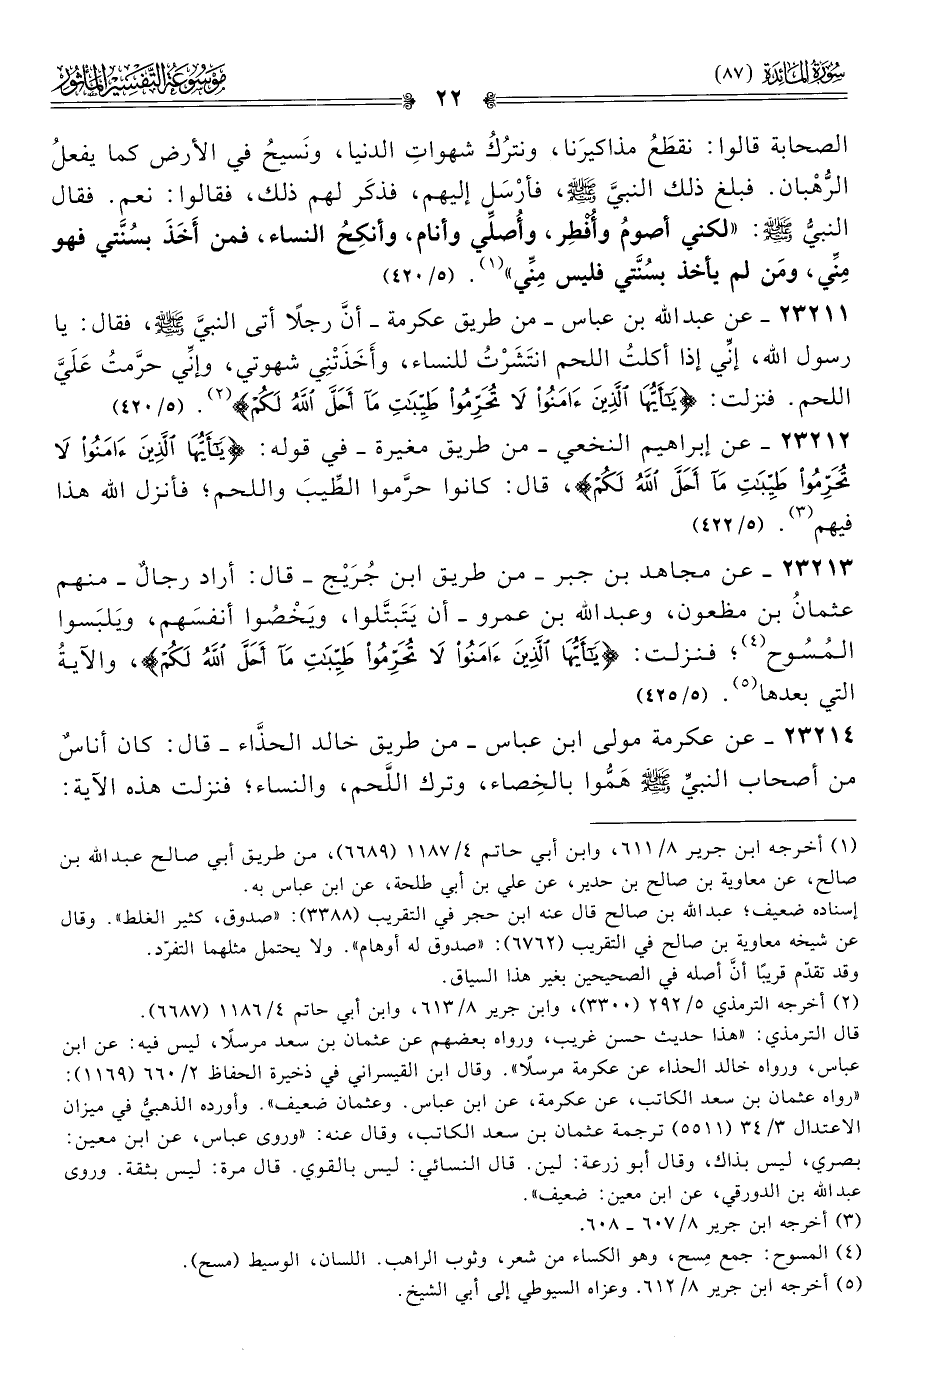 سُورَةُ المَائدَة (٨٧)
٢٢
مَوْسُوعَةُ التَّفْسِيرِ المَأْثُور
الصحابة قالوا: نقطَعُ مذاكيرَنا، ونترُكُ شهواتِ الدنيا، ونَسيحُ في الأرض كما يفعلُ
الرُّهْبان. فبلغ ذلك النبيَّ ﷺ، فأرْسَل إليهم، فذكَر لهم ذلك، فقالوا: نعم. فقال
النبيُّ ﷺ: «لكني أصومُ وأُفْطِر، وأُصلِّي وأنام، وأنكِحُ النساء، فمن أَخَذَ بسُنَّتي فهو
مِنِّي، ومَن لم يأخذ بسُنَّتي فليس مِنِّي»(١). (٤٢٠/٥)
٢٣٢١١ ـ عن عبدالله بن عباس ـ من طريق عكرمة ـ أنَّ رجلًا أتى النبيَّ ﷺ، فقال: يا
رسول الله، إنِّي إذا أكلتُ اللحم انتَشَرْتُ للنساء، وأَخَذَتْني شهوتي، وإنِّي حرَّمتُ عَلَيَّ
اللحم. فنزلت: ﴿يَٰٓأَيُّهَا ٱلَّذِينَ ءَامَنُوا۟ لَا تُحَرِّمُوا۟ طَيِّبَٰتِ مَآ أَحَلَّ ٱللَّهُ لَكُمْ﴾(٢). (٤٢٠/٥)
٢٣٢١٢ ـ عن إبراهيم النخعي ـ من طريق مغيرة ـ في قوله: ﴿يَٰٓأَيُّهَا ٱلَّذِينَ ءَامَنُوا۟ لَا
تُحَرِّمُوا۟ طَيِّبَٰتِ مَآ أَحَلَّ ٱللَّهُ لَكُمْ﴾، قال: كانوا حرَّموا الطِّيبَ واللحم؛ فأنزل الله هذا
فيهم(٣). (٤٢٢/٥)
٢٣٢١٣ ـ عن مجاهد بن جبر ـ من طريق ابن جُرَيْج ـ قال: أراد رجالٌ ـ منهم
عثمانُ بن مظعون، وعبدالله بن عمرو ـ أن يَتَبتَّلوا، ويَخْصُوا أنفسَهم، ويَلبَسوا
المُسُوح(٤)؛ فنزلت: ﴿يَٰٓأَيُّهَا ٱلَّذِينَ ءَامَنُوا۟ لَا تُحَرِّمُوا۟ طَيِّبَٰتِ مَآ أَحَلَّ ٱللَّهُ لَكُمْ﴾، والآيةُ
التي بعدها(٥). (٤٢٥/٥)
٢٣٢١٤ ـ عن عكرمة مولى ابن عباس ـ من طريق خالد الحذَّاء ـ قال: كان أناسٌ
من أصحاب النبيِّ ﷺ هَمُّوا بالخِصاء، وترك اللَّحم، والنساء؛ فنزلت هذه الآية:
(١) أخرجه ابن جرير ٨/ ٦١١، وابن أبي حاتم ٤/ ١١٨٧ (٦٦٨٩)، من طريق أبي صالح عبدالله بن
صالح، عن معاوية بن صالح بن حدير، عن علي بن أبي طلحة، عن ابن عباس به.
إسناده ضعيف؛ عبدالله بن صالح قال عنه ابن حجر في التقريب (٣٣٨٨): «صدوق، كثير الغلط». وقال
عن شيخه معاوية بن صالح في التقريب (٦٧٦٢): «صدوق له أوهام». ولا يحتمل مثلهما التفرّد.
وقد تقدّم قريبًا أنَّ أصله في الصحيحين بغير هذا السياق.
(٢) أخرجه الترمذي ٥/ ٢٩٢ (٣٣٠٠)، وابن جرير ٨/ ٦١٣، وابن أبي حاتم ٤/ ١١٨٦ (٦٦٨٧).
قال الترمذي: «هذا حديث حسن غريب، ورواه بعضهم عن عثمان بن سعد مرسلًا، ليس فيه: عن ابن
عباس، ورواه خالد الحذاء عن عكرمة مرسلًا». وقال ابن القيسراني في ذخيرة الحفاظ ٢/ ٦٦٠ (١١٦٩):
«رواه عثمان بن سعد الكاتب، عن عكرمة، عن ابن عباس. وعثمان ضعيف». وأورده الذهبيُّ في ميزان
الاعتدال ٣/ ٣٤ (٥٥١١) ترجمة عثمان بن سعد الكاتب، وقال عنه: «وروى عباس، عن ابن معين:
بصري، ليس بذاك، وقال أبو زرعة: لين. قال النسائي: ليس بالقوي. قال مرة: ليس بثقة. وروى
عبدالله بن الدورقي، عن ابن معين: ضعيف».
(٣) أخرجه ابن جرير ٨/ ٦٠٧ ـ ٦٠٨.
(٤) المسوح: جمع مِسح، وهو الكساء من شعر، وثوب الراهب. اللسان، الوسيط (مسح).
(٥) أخرجه ابن جرير ٨/ ٦١٢. وعزاه السيوطي إلى أبي الشيخ.